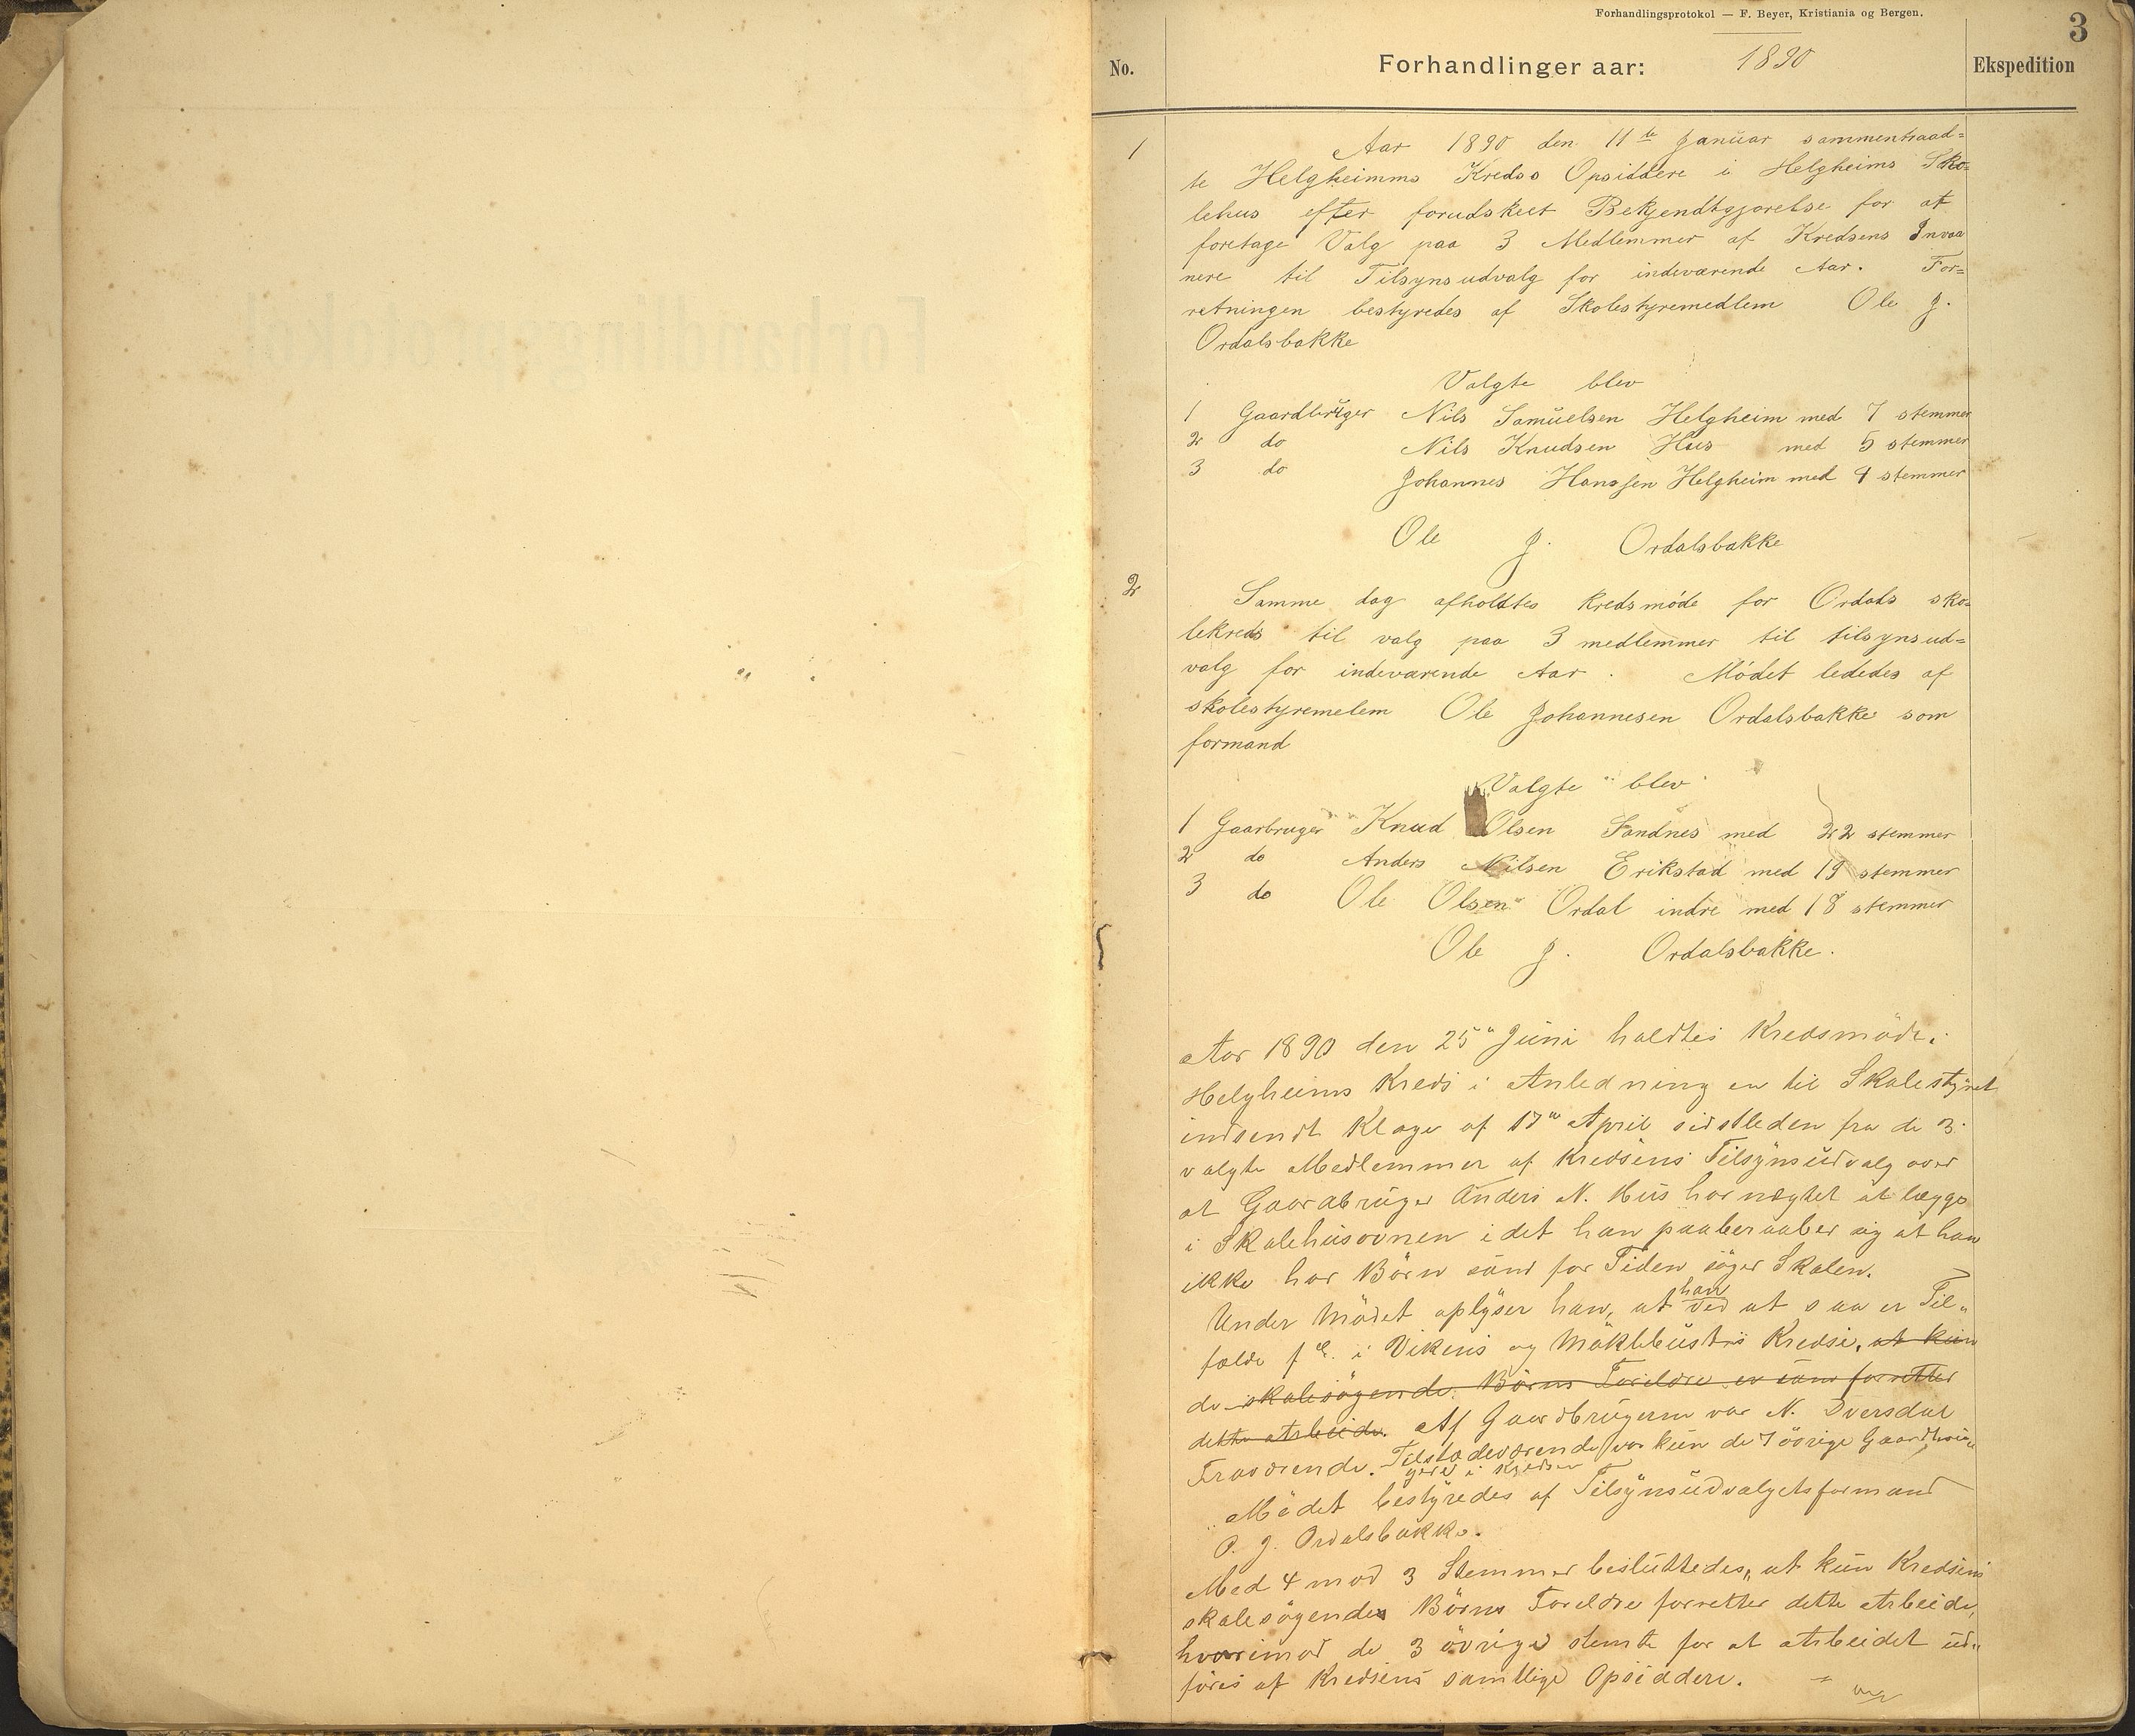 Forhandlingsprotokol — F. Beyer, Kristiania og Bergen.
3
No.
Forhandlinger aar: 1890
Ekspedition
1
Aar 1890 den 11te Januar sammentraad=
te Helgheimms Kredss Opsiddere i Helgheims Sko=
lehus efter forudskeet Bekjendtgjørelse for at
foretage Valg paa 3 Medlemmer af Kredsens Invaa
nere til Tilsynsudvalg for indeværende Aar. For=
retningen bestyredes af Skolestyremedlem Ole J.
Ordalsbakke
Valgte blev
1 Gaardbrŭger Nils Samŭelsen Helgheim med 7 stemmer
2 do Nils Knudsen Hus med 5 stemmer
3 do Johannes Hanssen Helgheim med 4 stemmer
Ole J. Ordalsbakke
2
Samme dag afholdtes kredsmóde for Ordals sko=
lekreds til valg paa 3 medlemmer til tilsynsud=
valg for indeværende Aar. Módet lededes af
skolestyremelem Ole Johannesen Ordalsbakke som
formand
Valgte blev
1 Gaarbruger Knud Olsen Sandnes med 22 stemmer
2 do Anders Nilsen Erikstad med 19 stemmer
3 do Ole Olsen Ordal indre med 18 stemmer
Ole J. Ordalsbakke.
Aar 1890 den 25" Jŭni holdtes Kredsmöde i
Helgheims Kreds i Anledning en til Skolestyret
indsendt Klage af 17" April sidstleden fra de 3
valgte Medlemmer af Kredsens Tilsynsŭdvalg over
at Gaardbrŭger Anders N. Hŭs har nægtet at lægge
i Skolehŭsovnen idet han paaberaaber sig at han
ikke har Börn som for Tiden söger Skolen.
Under Mödet oplyser han, at han ved at saa er Til„
fælde i Vikens og Möklebŭsts Kredse, at kŭn
de skolesögende Börns Foreldre er som forretter
dette Arbeide. Af Gaardbrŭgerne var N. Dversdal
Fraværende. Tilstedeværende var kŭn de 7 övrige Gaardbrŭ„
gere i Kredsen
Mödet bestyredes af Tilsynsŭdvalgetsformand
O. J. Ordalsbakke.
Med 4 mod 3 Stemmer beslŭttedes, at kŭn Kredsens
skolesögendes Börns Foreldre forretter dette Arbeide,
hvorimod de 3 övrige stemte for at Arbeidet ŭd„
föres af Kredsens samtlige Opsiddere.